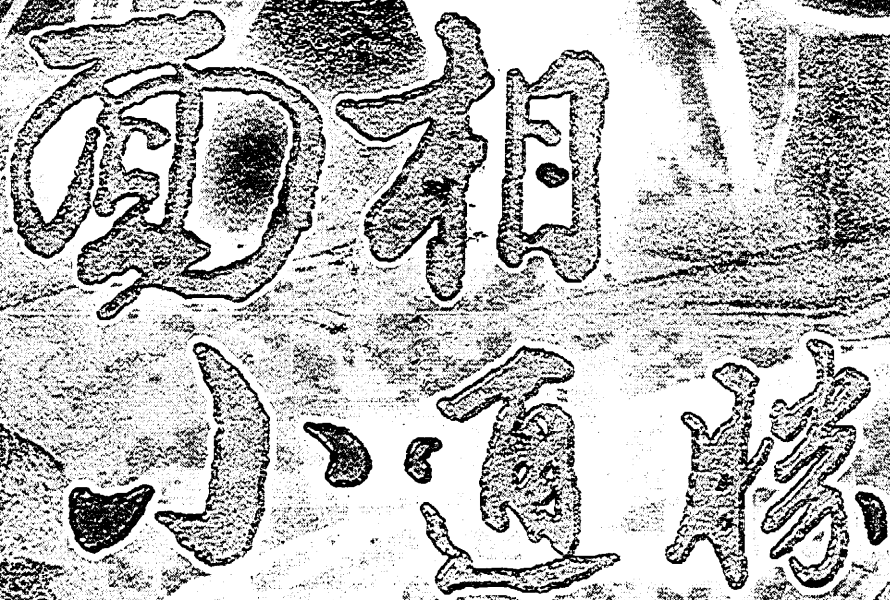 面相
小通勝